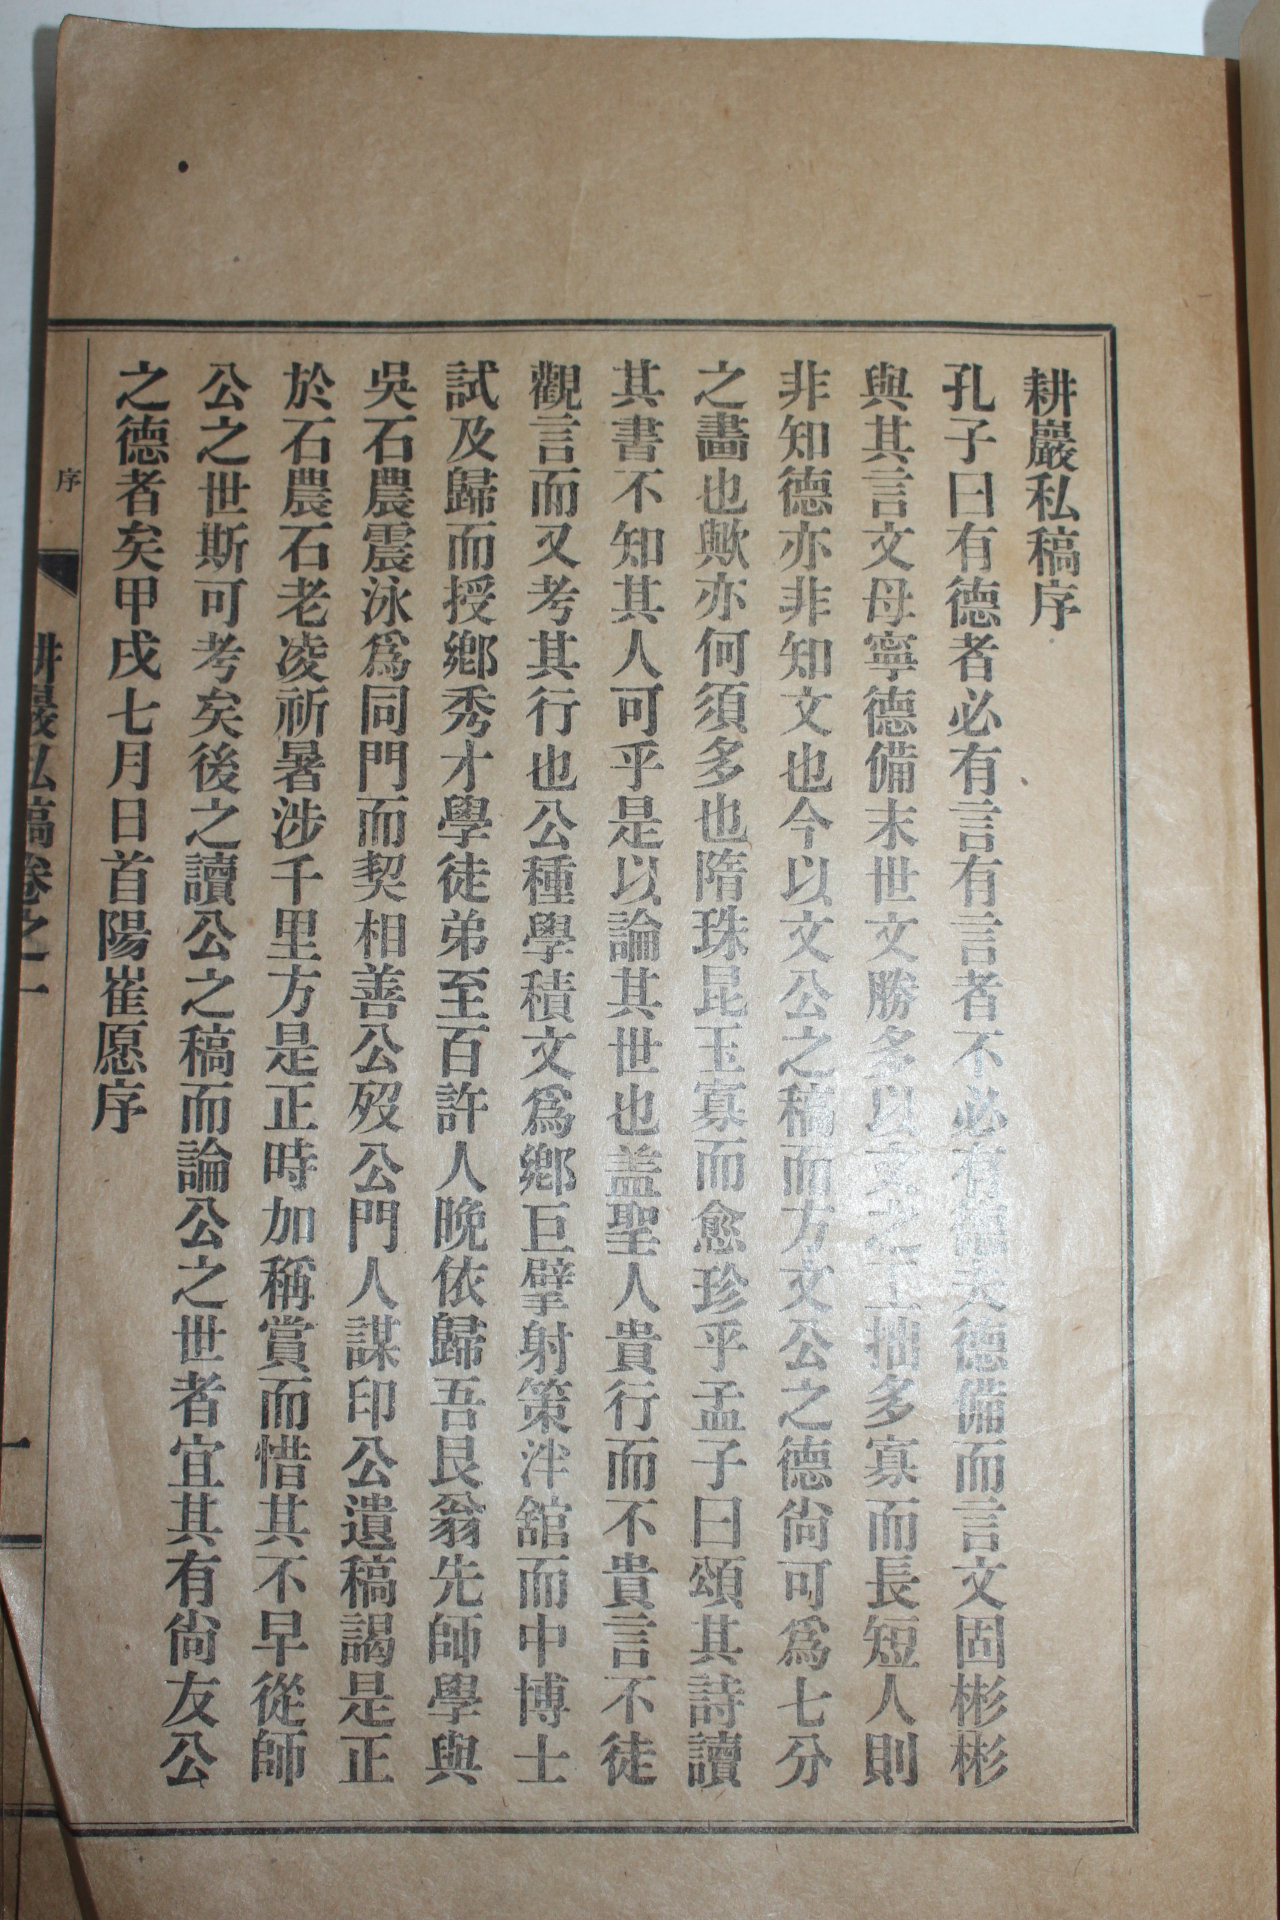 耕巖私稿序
孔子曰有德者必有言有言者不必有德夫德備而言文固彬彬
與其言文毋寧德備末世文勝多以文之工拙多寡而長短人則
非知德亦非知文也今以文公之稿而方文公之德尙可爲七分
之畵也歟亦何須多也隋珠昆玉寡而愈珍乎孟子曰頌其詩讀
其書不知其人可乎是以論其世也盖聖人貴行而不貴言不徒
觀言而又考其行也公種學積文爲鄕巨擘射策泮舘而中博士
試及歸而授鄕秀才學徒弟至百許人晩依歸吾艮翁先師學與
吳石農震泳爲同門而契相善公歿公門人謀印公遺稿謁是正
於石農石老凌祈暑涉千里方是正時加稱賞而惜其不早從師
公之世斯可考矣後之讀公之稿而論公之世者宜其有尙友公
之德者矣甲戌七月日首陽崔愿序
序
耕巖私稿卷之一
一